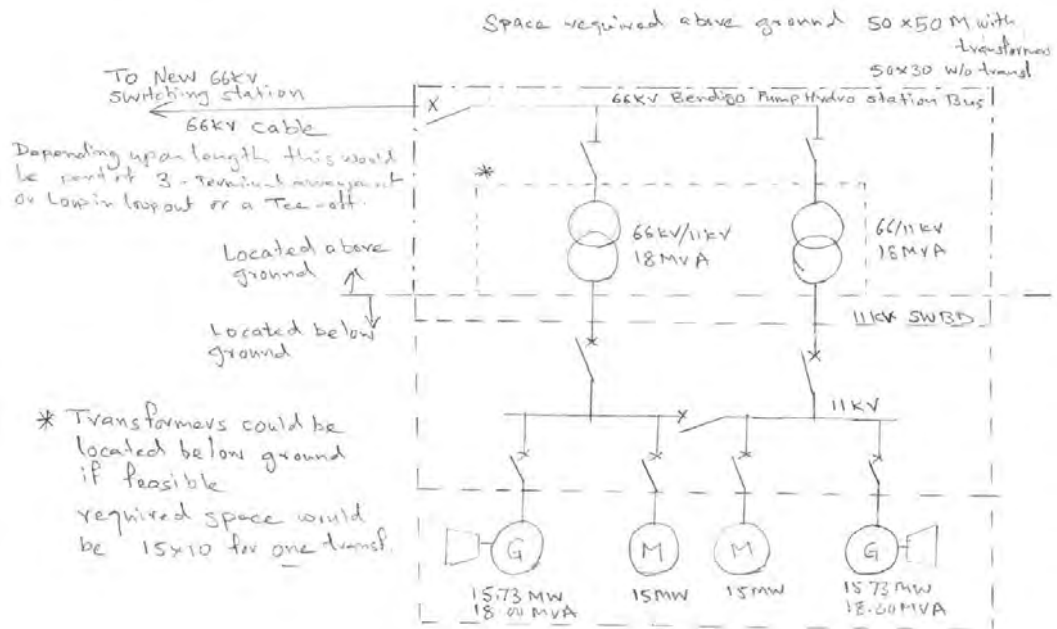 Space required above ground 50x50 M with
transformers
50x30 w/o transf
To New 66kV
switching station
66kV cable
66kV Bendigo Pump Hydro station Bus
Depending upon length this would
be part of 3-Terminal arrangement
or Loop in loop out or a Tee-off.
*
66kV/11kV
18 MVA
66/11kV
18 MVA
Located above
ground
Located below
ground
11kV SWBD
11kV
* Transformers could be
located below ground
if feasible
required space would
be 15x10 for one transf.
G
M
M
G
15.73 MW
18.00 MVA
15MW
15MW
15.73 MW
18.00 MVA